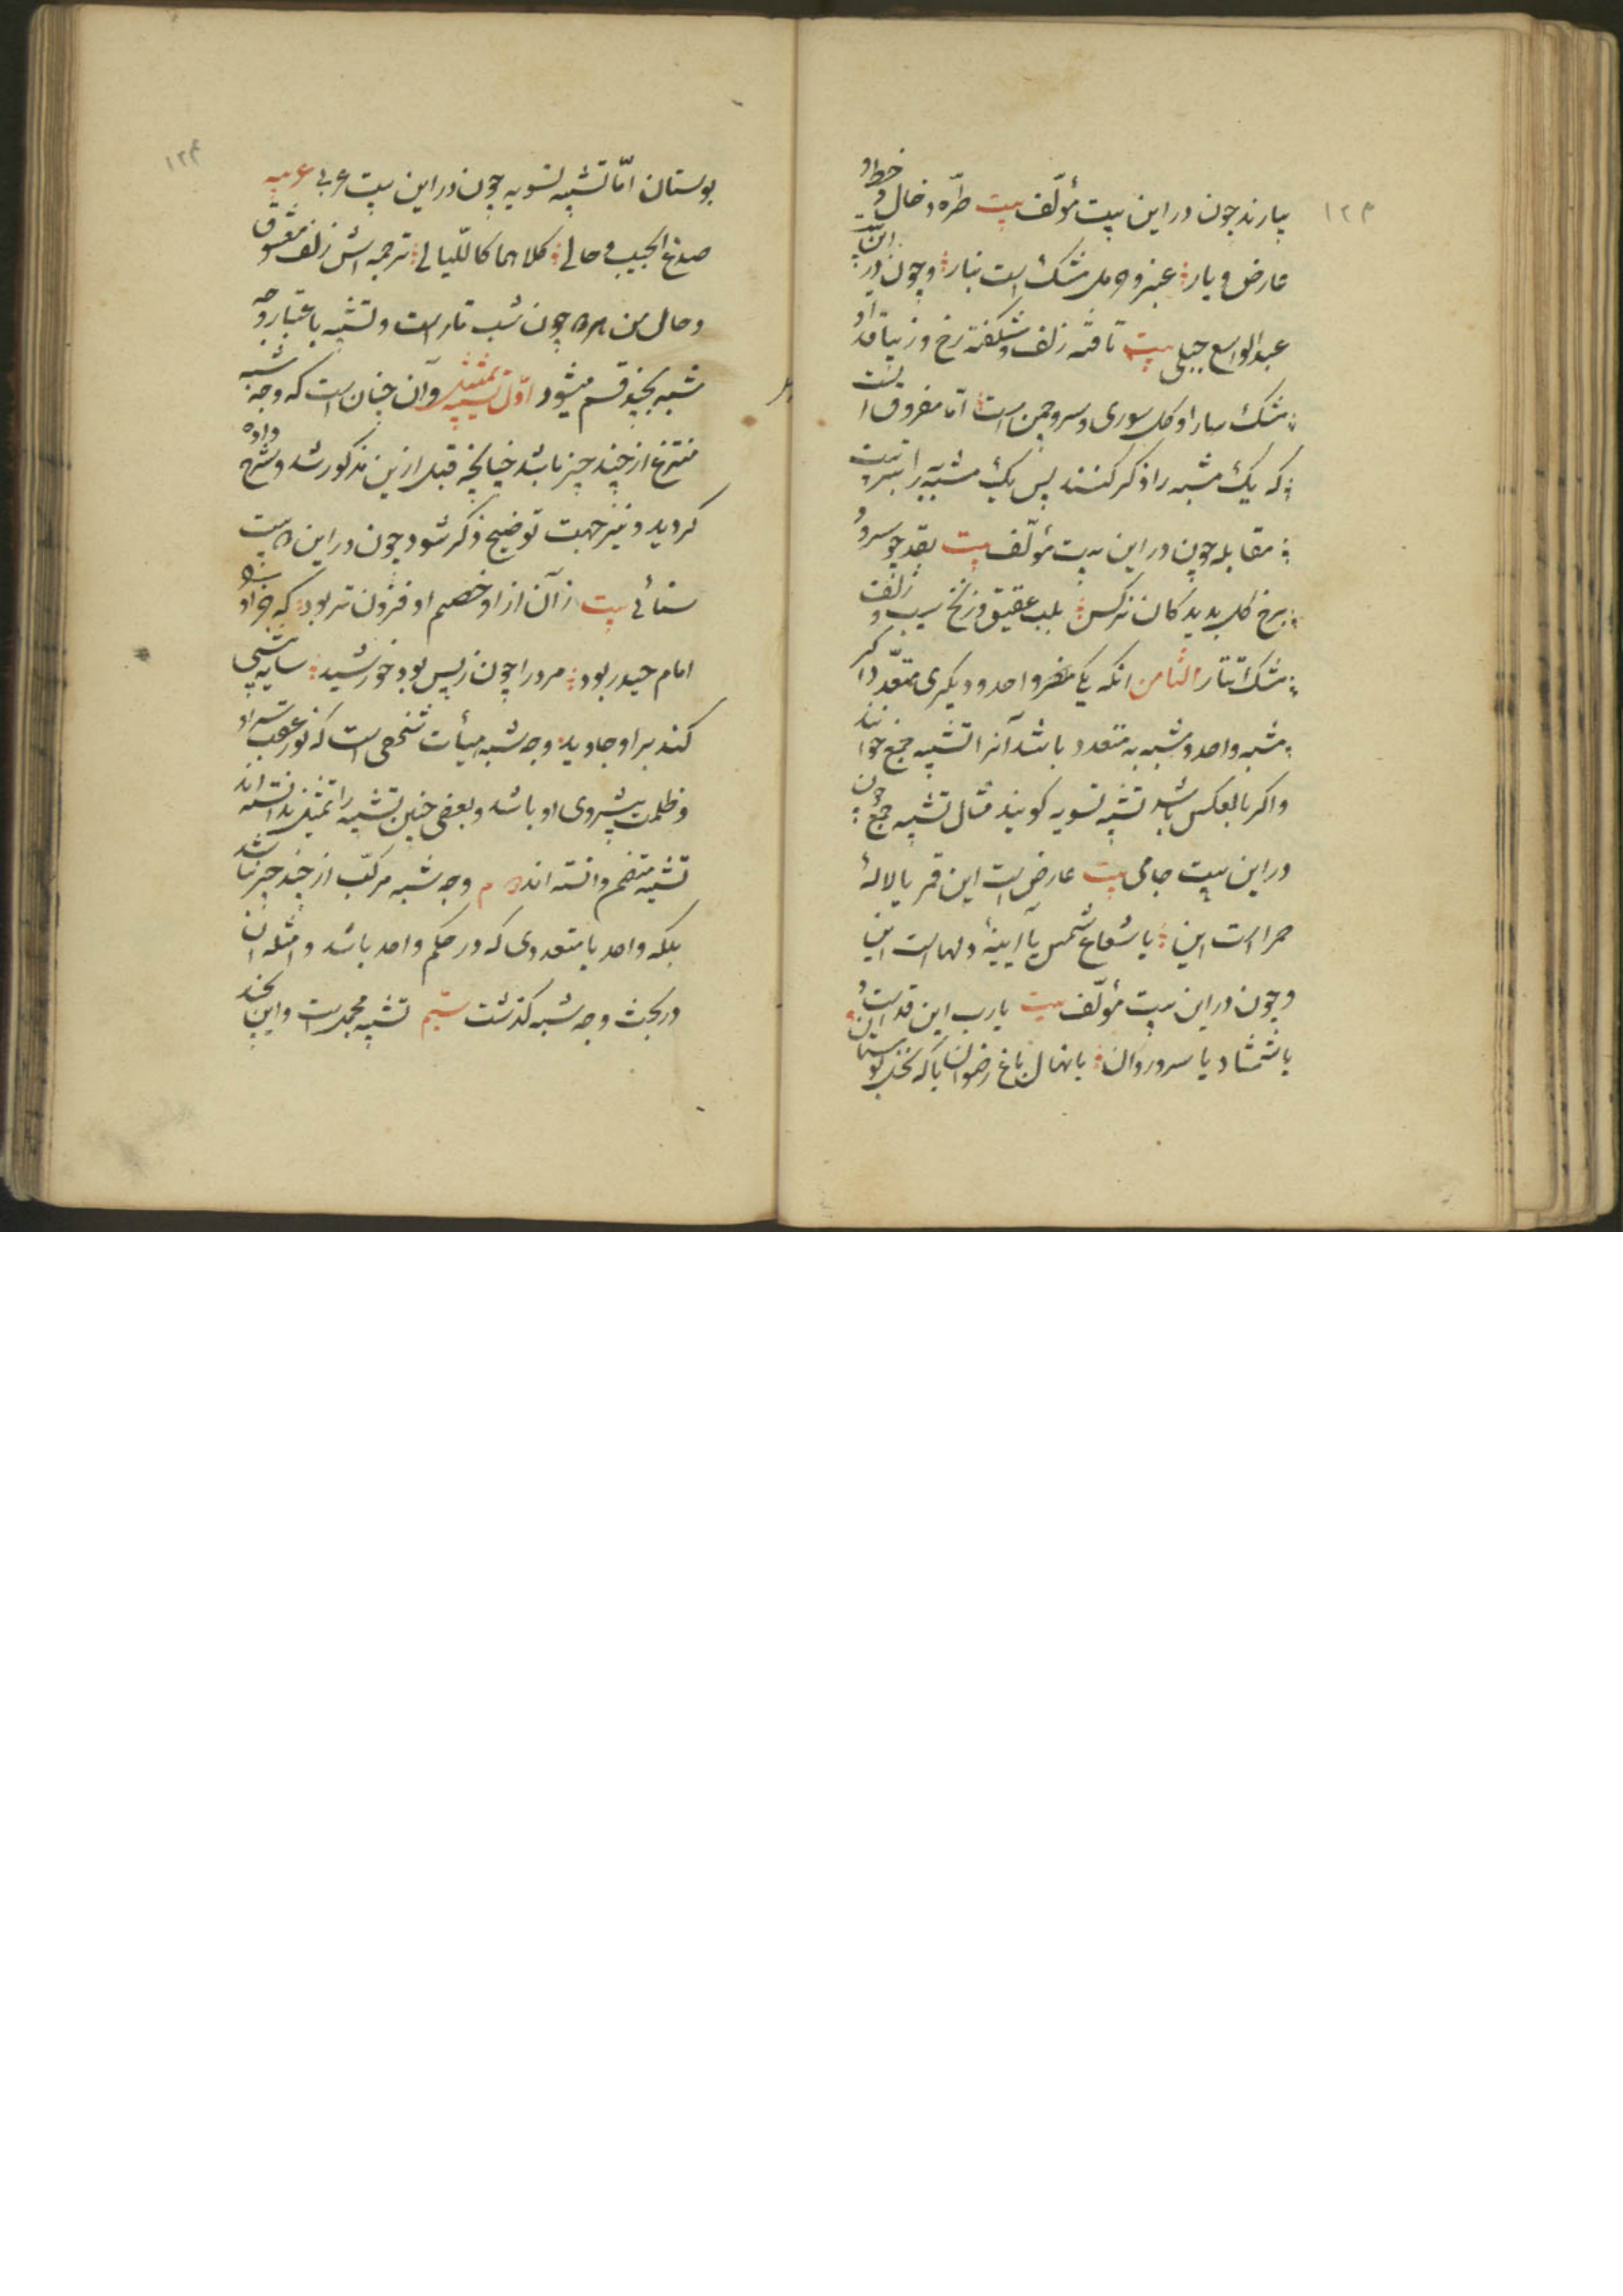 ۱۲۳
بیارند چون در این بیت مؤلّف بیت طرّه و خال و خط و
عارض و یار عنبر و گل مشک است بنار و چون در این بیت
عبدالواسع جبلی بیت تافته زلف و شکفته رخ و زیبا قد او
مشک سارا و کل سوری و سرو چمن است امّا مفروق آنست
که یک مشبه را ذکر کنند پس یک مشبّه به را بترتیب
مقابله چون در این بیت مؤلّف بیت بقد چو سرو و
برخ کل بدیدکان نرکس بلب عقیق و زنخ سیب و زلفت
مشک تتار الثامن انکه یک طرف واحد و دیکری متعدّد اکر
مشبه واحد و مشبه به متعدد باشد آنرا تشبیه جمع خوانند
و اکر بالعکس باشد تشبیه تسویه کویند مثال تشبیه جمع چون
در این بیت جامی بیت عارض است این قمر یا لالهٔ
حمراست این یا شعاع شمس یا آیینهٔ دلهاست این
و چون در این بیت مؤلّف بیت یارب این قد است و
یا شمشاد یا سرو روان یا نهال باغ رضوان یا که نخل بوستان
۱۲۴
بوستان امّا تشبیه تسویه چون در این بیت عربی عربیه
صدغ الحبیب و حالی کلاهما کاللّیالی ترجمه اش زلف معشوق
و حال من هر دو چون شب تار است و تشبیه باعتبار وجه
شبه بچند قسم میشود اوّل تشبیه تمثیل و آن چنان است که وجه شبه
منتزع از چند چیز باشد چنانچه قبل از این مذکور شد و شرح داده
کردید و نیز جهت توضیح ذکر شود چون در این بیت
سنائی بیت زآن از او خصم او فزون تر بود که
امام حیدر بود مرد را چون ز پس بود خورشید سایه پیشی
کند بر او جاوید وجه شبه هیأت شخصی است که نور عقب سر او
و ظلمت پیشروی او باشد و بعضی چنین تشبیه را تمثیل ندانسته اند
تشبیه دانسته اند م وجه شبه مرکّب از چند چیز نباشد
بلکه واحد یا متعددی که در حکم واحد باشد و امثله آن
در بحث وجه شبه کذشت سیّم تشبیه مجمل است و این بچند